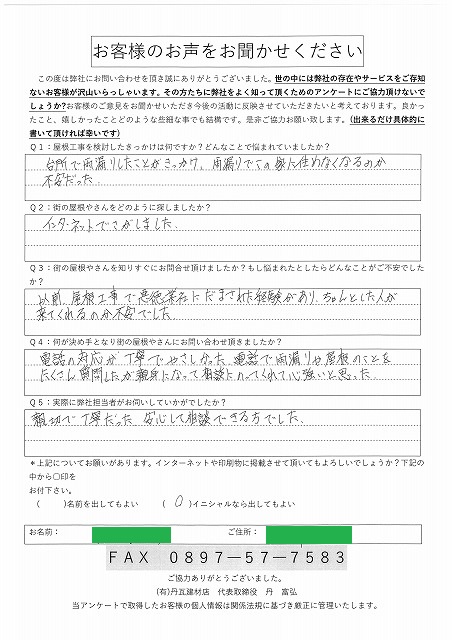 お客様のお声をお聞かせください
この度は弊社にお問い合わせを頂き誠にありがとうございました。世の中には弊社の存在やサービスをご存知
ないお客様が沢山いらっしゃいます。その方たちに弊社をよく知って頂くためのアンケートにご協力頂けないで
しょうか?お客様のご意見をお聞かせいただき今後の活動に反映させていただきたいと考えております。良かっ
たこと、嬉しかったことどのような些細な事でも結構です。是非ご協力お願い致します。(出来るだけ具体的に
書いて頂ければ幸いです)
Q1:屋根工事を検討したきっかけは何ですか?どんなことで悩まれていましたか?
台所で雨漏りしたことがきっかけ。雨漏りでこの家に住めなくなるのか
不安だった.
Q2:街の屋根やさんをどのように探しましたか?
インターネットでさがしました.
Q3:街の屋根やさんを知りすぐにお問合せ頂けましたか?もし悩まれたとしたらどんなことがご不安でした
か?
以前、屋根工事で悪徳業者にだまされた経験があり、ちゃんとした人が
来てくれるのか不安でした.
Q4:何が決め手となり街の屋根やさんにお問い合わせ頂きましたか?
電話の対応が丁寧でやさしかった、電話で雨漏りや屋根のことを
たくさん質問したが親身になって相談にのってくれて心強いと思った
Q5:実際に弊社担当者がお伺いしていかがでしたか?
親切で丁寧だった 安心して相談できる方でした.
*上記についてお願いがあります。インターネットや印刷物に掲載させて頂いてもよろしいでしょうか?下記の
中から○印を
お付下さい。
( )名前を出してもよい ( ○ )イニシャルなら出してもよい
お名前: ご住所:
FAX 0897-57-7583
ご協力ありがとうございました。
(有)丹瓦建材店 代表取締役 丹 富弘
当アンケートで取得したお客様の個人情報は関係法規に基づき厳正に管理いたします。